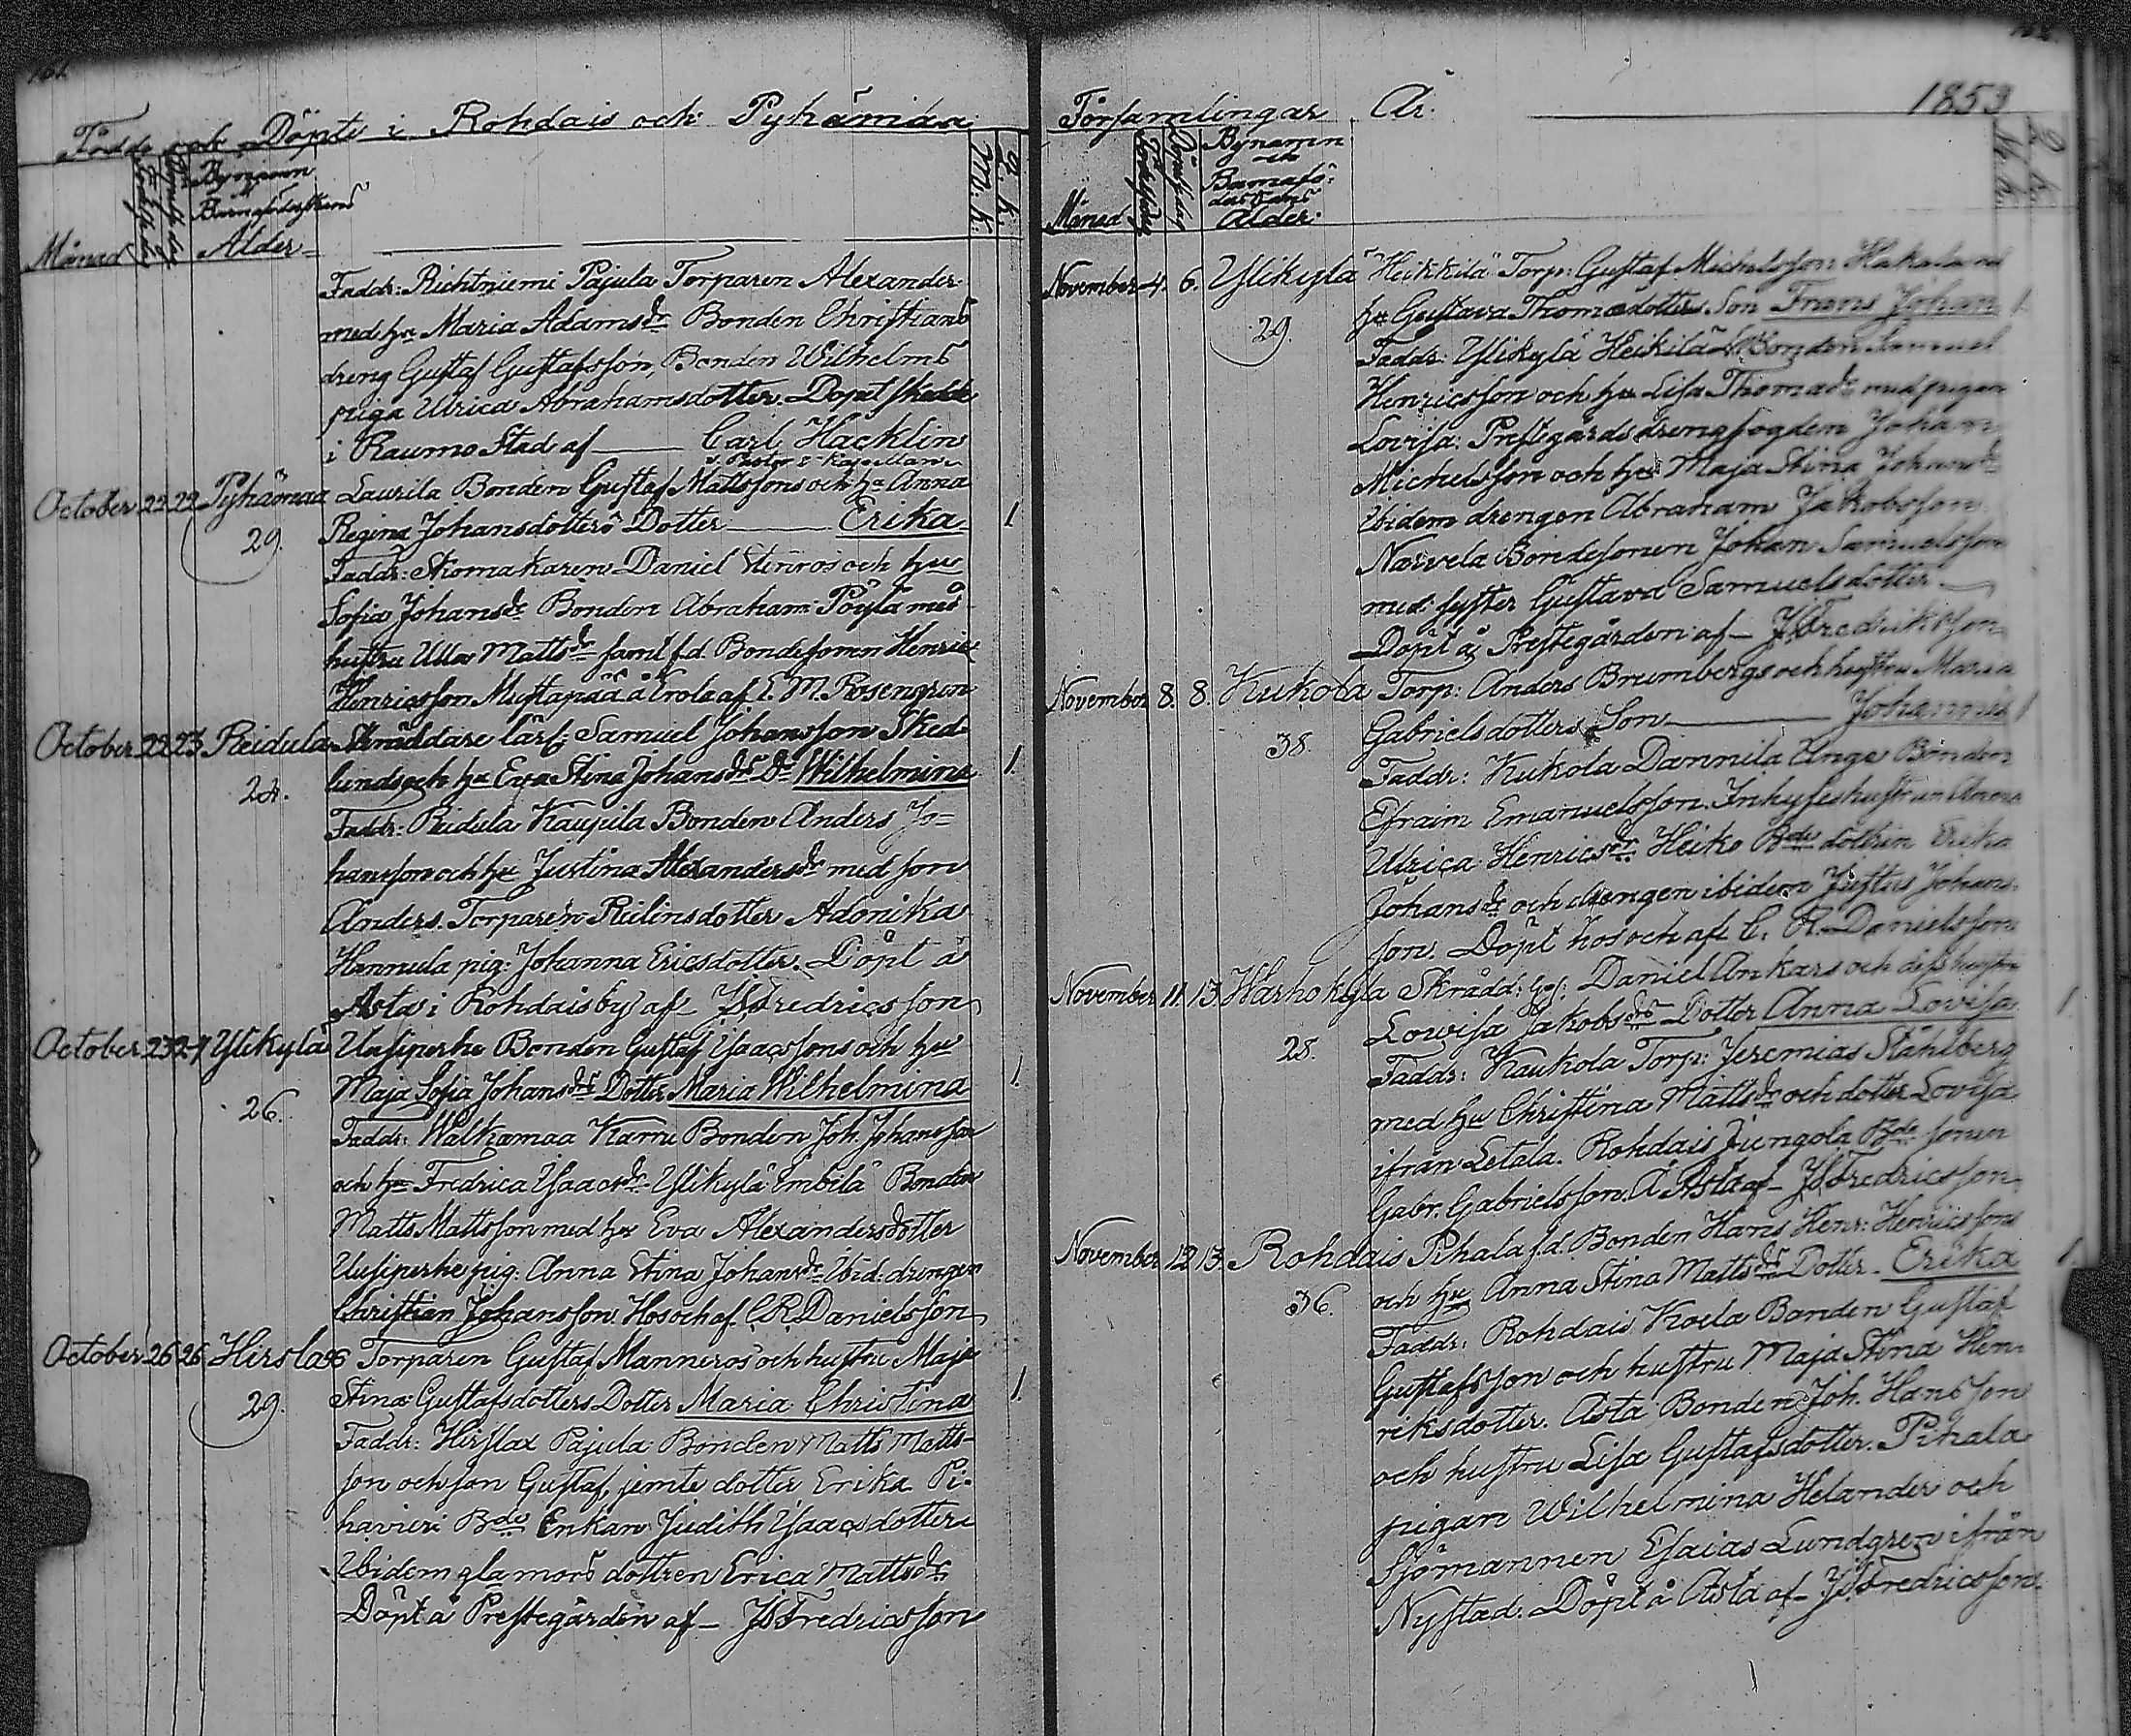 Födde och Döpte i Rohdais och Pyhämaa
Månad
Födelsedag
Döpelsedag
Bynamn
Barnaföderskans
Ålder
M. k.
Q. k.
Faddr: Richtniemi Pajula Torparen Alexander
med hu Maria Adamsdr Bonden Christians
dreng Gustaf Gustafsson, Bonden Wilhelms
piga Ulrica Abrahamsdotter. Dopet skedde
i Raumo Stad af — Carl Hacklin
v. Pastor
October 22 22 Pyhämaa Laurila Bonden Gustaf Mattssons och hu Anna
29. Regina Johansdotters Dotter — Erika 1
Faddr: Skomakaren Daniel Stenros och hu
Sofia Johansdr Bonden Abraham Pöylä med
hustru Ulla Mattsdr samt f.d. Bondesonen Henric
Henricsson Mustapää å Erola af E. M. Rosengren
October 22 23 Reidula Skräddare lärl: Samuel Johansson Sked-
24. lunds och hu Eva Stina Johansdrs Dr Wilhelmina 1.
Faddr: Reidula Kaujula Bonden Anders Jo=
hansson och hu Justina Alexandersdr med son
Anders. Torparen Reilins dotter Adonika
Hannula pig: Johanna Ericsdotter. Döpt å
Asta i Rohdais by af JFredricsson
October 23 24 Ylikylä Uusiperhe Bonden Gustaf Isaacssons och hu
26. Maja Sofia Johansdrs Dotter Maria Wilhelmina 1.
Faddr: Walkamaa Karru Bonden Joh. Johansson
och hu Fredrica Isaacsdr Ylikylä Imbilä Bonden
Matts Mattsson med hu Eva Alexandersdotter
Uusiperhe pig: Anna Stina Johansdr Ibid: drengen
Christian Johansson. Hos och af C. R. Danielsson
October 26 26 Hirslax Torparen Gustaf Manneros och hustru Maja
29. Stina Gustafsdotters Dotter Maria Christina 1.
Faddr: Hirslax Pajula Bonden Matts Matts-
son och son Gustaf, jemte dotter Erika Pi-
havieri Bde Enkan Judith Isaacsdotter
Ibidem glamors dottren Erica Mattsdr
Döpt å Prestegården af — JFredricsson
Församlingar År. 1853
Månad
Födelsedag
Döpelsedag
Bynamn
och
Barnafö-
derskans
Ålder.
M. k.
Q. k.
November 4. 6. Ylikylä Heikkilä Torp: Gustaf Michelsson Hakala och
29. hu Gustava Thomædotters Son Frans Johan 1
Faddr: Ylikylä Heikilä Bonden Samuel
Henricsson och hu Lisa Thomædr med pigan
Lovisa: Prestegårds drengfogden Johan
Michelsson och hu Maja Stina Johansdr
Ibidem drengen Abraham Jakobsson
Narvela Bondesonen Johan Samuelsson
med syster Gustava Samuelsdotter
Döpt å Prestegården af — JFredriksson
November 8. 8. Kukola Torp: Anders Brumbergs och hustru Maria
38. Gabrielsdotters Son — Johannes 1
Faddr: Kukola Dannila Unge Bonden
Efraim Emanuelsson. Inhyseshustrun Anna
Ulrica Henricsdr. Heiko Bde dottren Erika
Johansdr och drengen ibidem Justus Johans-
son. Döpt hos och af C. R. Danielsson
November 11. 13. Warhokylä Skrädd: Ges: Daniel Ankars och dess hustru
28. Lowisa Jakobsdrs Dotter Anna Lovisa 1
Faddr: Kaukola Torp: Jeremias Stålberg
med hu Christina Mattsdr och dotter Lovisa
ifrån Letala. Rohdais Jungola Bde sonen
Gabr. Gabrielsson. Å Asta af — JFredricsson
November 12 13. Rohdais Pihala f.d. Bonden Hans Henr: Henricssons
36. och hu Anna Stina Mattsdrs Dotter — Erika 1.
Faddr: Rohdais Koela Bonden Gustaf
Gustafsson och hustru Maja Stina Hen-
riksdotter. Asta Bonden Joh. Hansson
och hustru Lisa Gustafsdotter. Pihala
pigan Wilhelmina Helander och
Sjömannen Esaias Lundgren ifrån
Nystad. Döpt å Asta af — JFredricsson.